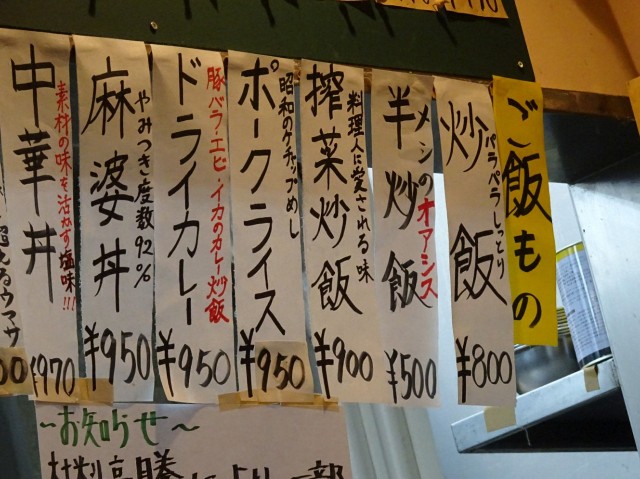 ご飯もの
炒飯
パラパラしっとり
¥800
半炒飯
メシのオアシス
¥500
搾菜炒飯
料理人に愛される味
¥900
ポークライス
昭和のケチャップめし
¥950
ドライカレー
豚バラ・エビ・イカのカレー炒飯
¥950
麻婆丼
やみつき度数92%
¥950
中華丼
素材の味を活かす塩味!!!
¥970
超えるウマサ
00
〜お知らせ〜
材料高騰により一部